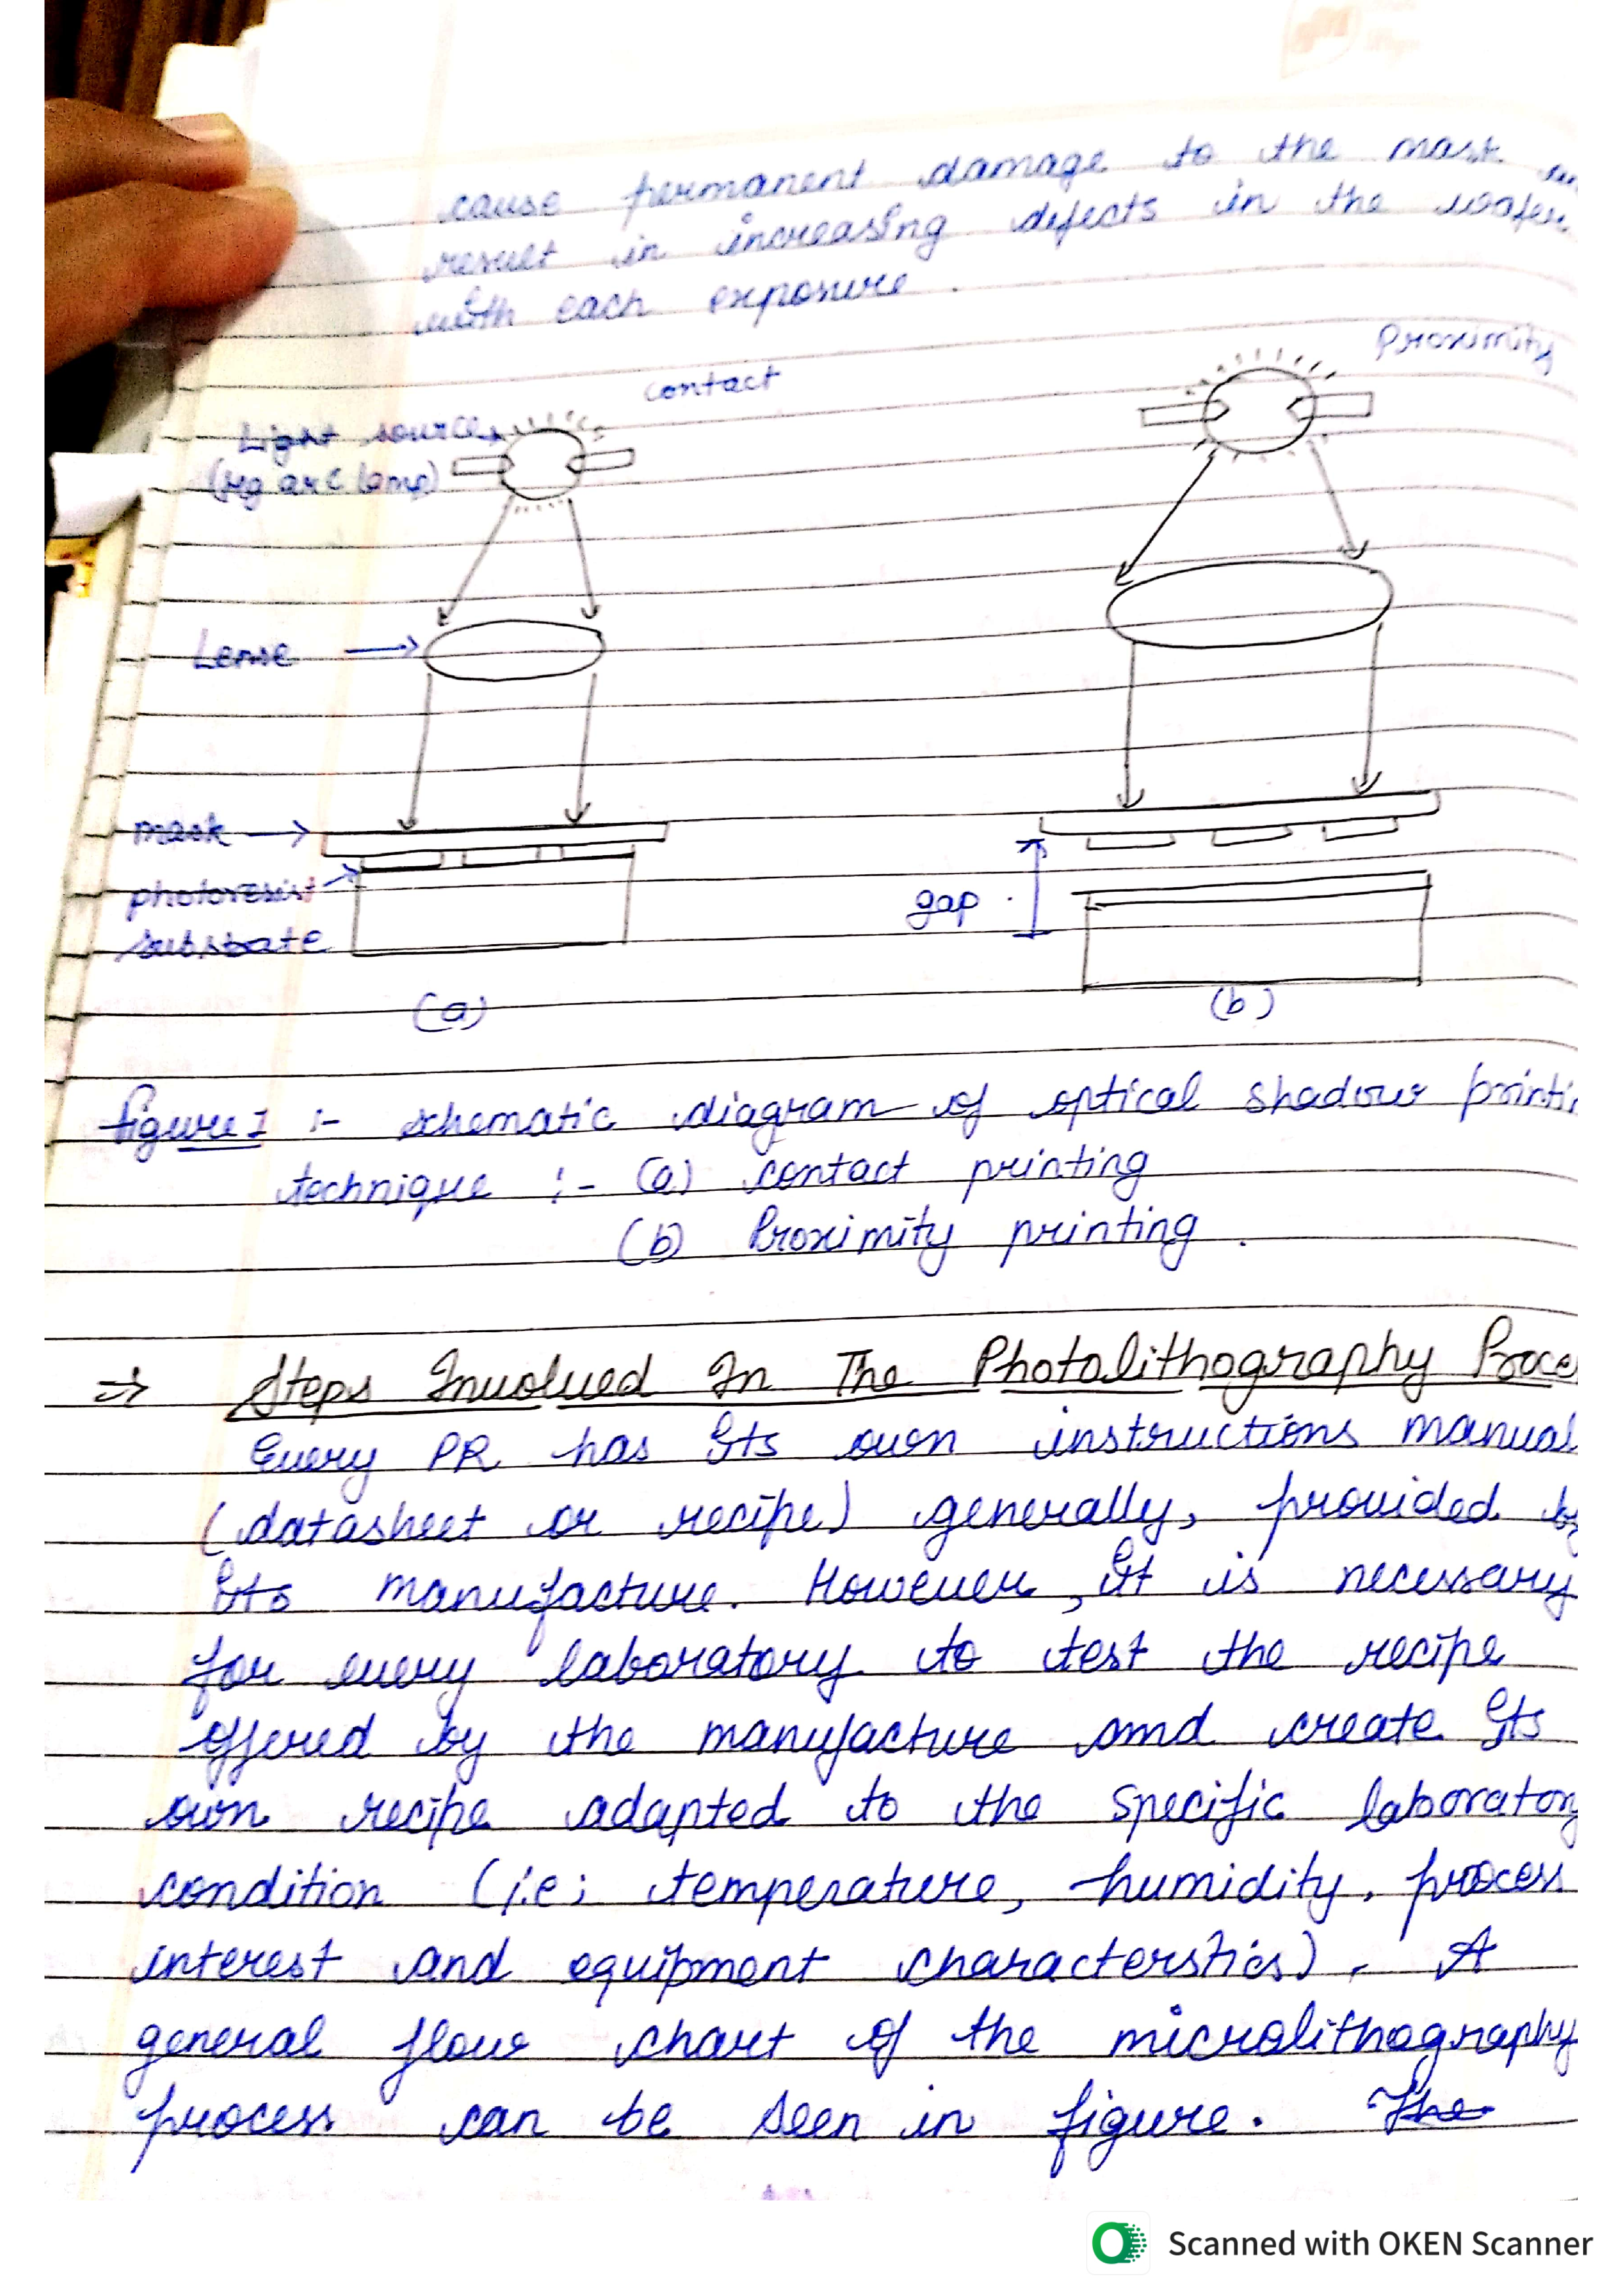 cause permanent damage to the mask
result in increasing defects in the wafer
with each exposure.
contact
Proximity
Light source
(Hg arc lamp)
Lense
mask
photoresist
substrate
gap
(a)
(b)
figure 1 :- schematic diagram of optical shadow printin
technique :- (a) contact printing
(b) Proximity printing.
⇒ Steps Involved In The Photolithography Proce
Every PR has Its own instructions manual
(datasheet or recipe) generally, provided by
Its manufacture. However, It is necessary
for every laboratory to test the recipe
offered by the manufacture and create Its
own recipe adapted to the specific laboratory
condition (i.e; temperature, humidity, process
interest and equipment characterstics). A
general flow chart of the microlithography
process can be seen in figure. The
Scanned with OKEN Scanner